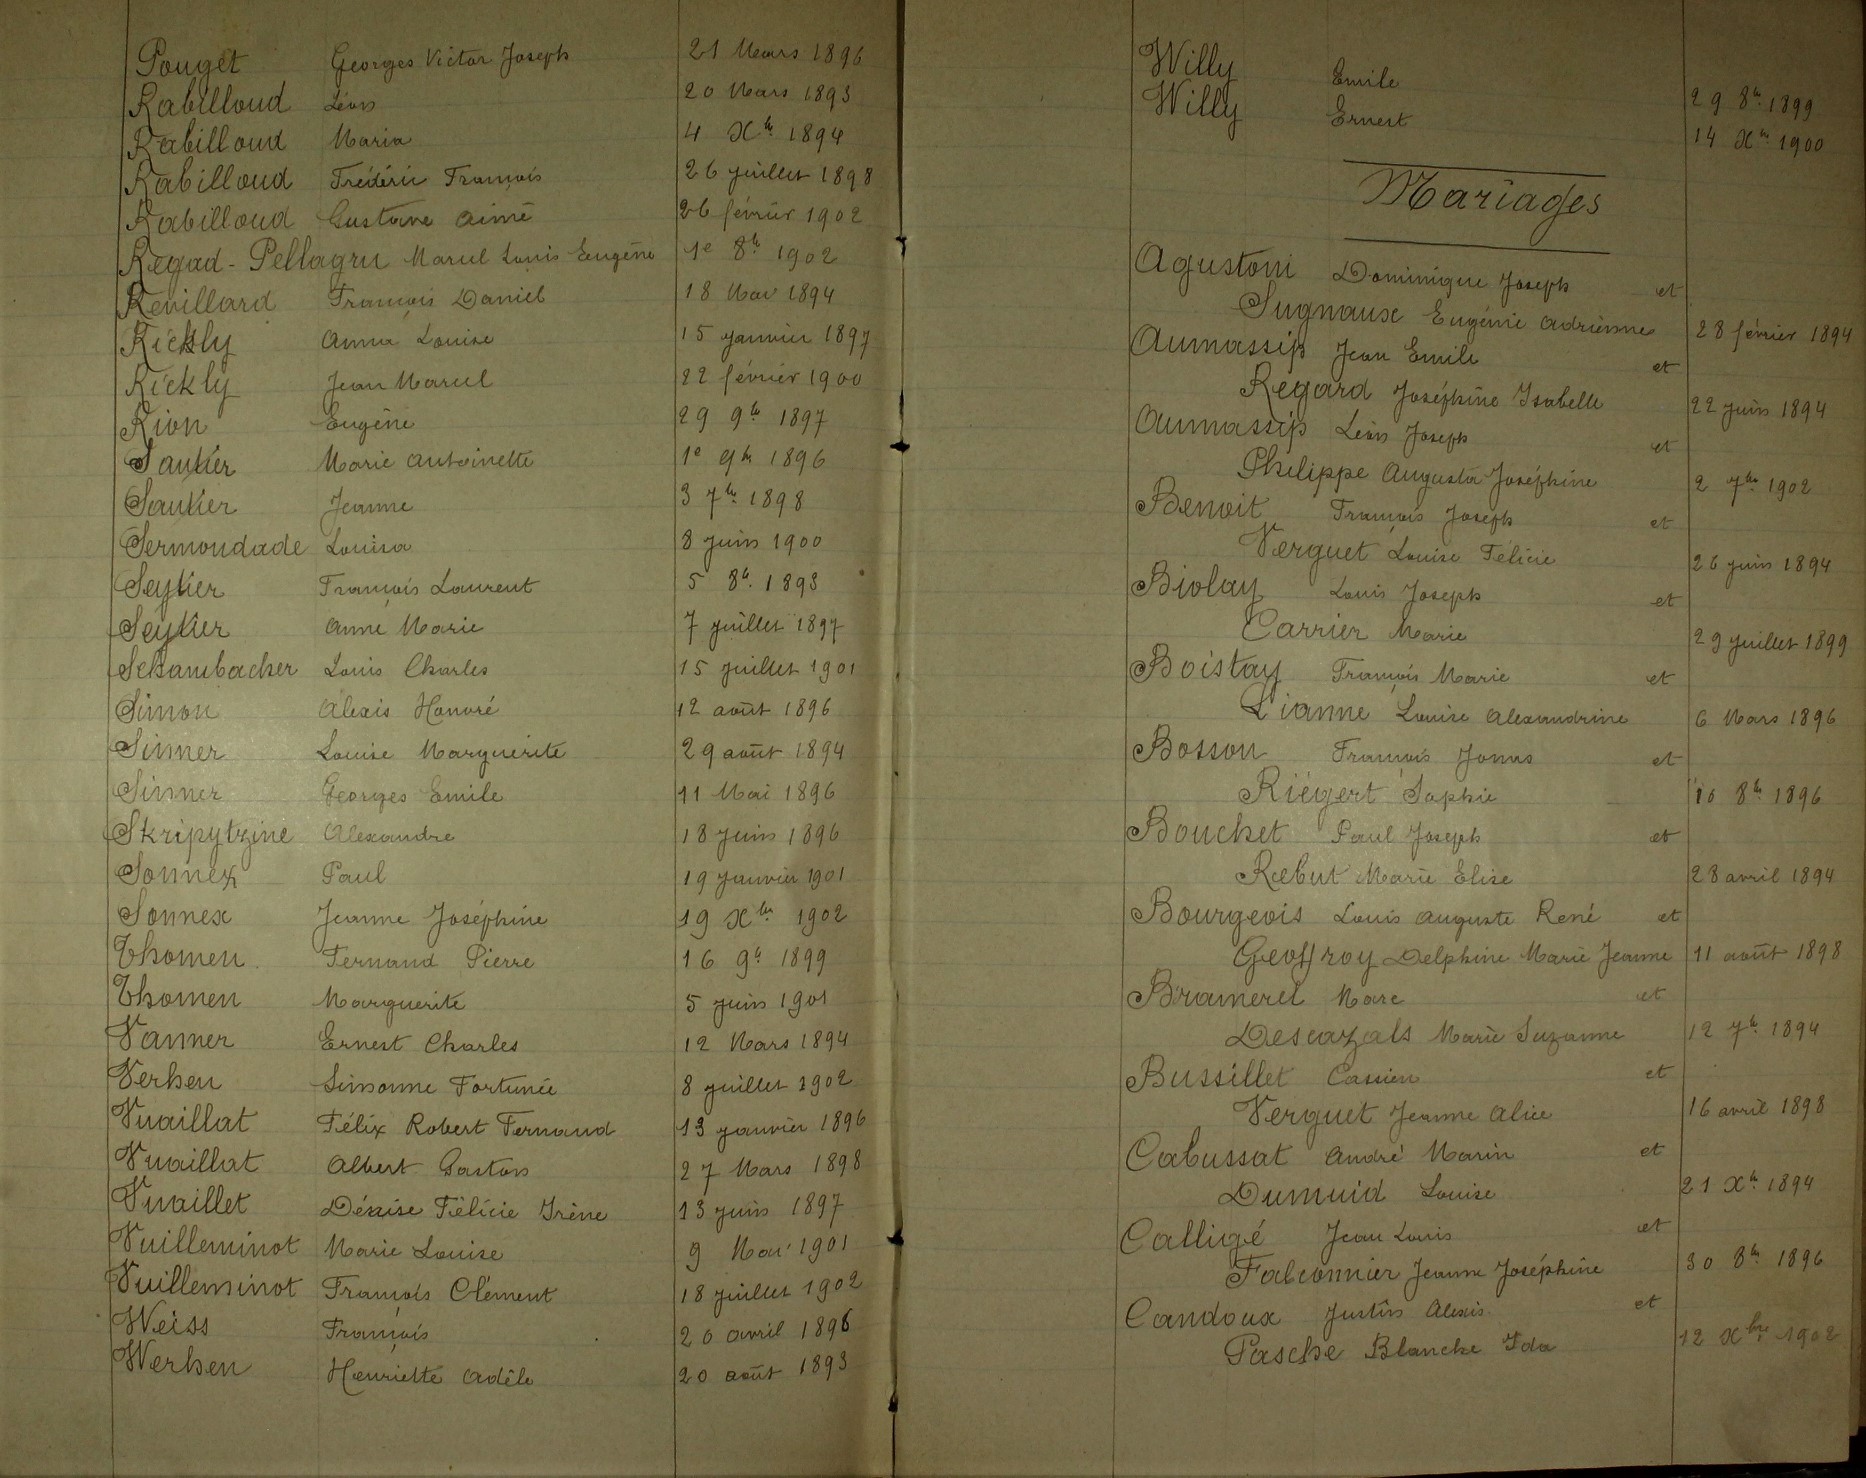 Pouget Georges Victor Joseph 21 Mars 1896
Rabilloud Léon 20 Mars 1893
Rabilloud Maria 4 Xbre 1894
Rabilloud Frédéric François 26 juillet 1898
Rabilloud Gustave Aimé 26 février 1902
Regad-Pellagru Marcel Louis Eugène 1e 8bre 1902
Revillard François Daniel 18 Mar 1894
Rickly Anna Louise 15 janvier 1897
Rickly Jean Marcel 22 février 1900
Rion Eugène 29 9bre 1897
Sautier Marie Antoinette 1e 9bre 1896
Sautier Jeanne 3 7bre 1898
Sermondade Louisa 8 juin 1900
Seytier François Laurent 5 8bre 1893
Seytier Anne Marie 7 juillet 1897
Schambacher Louis Charles 15 juillet 1901
Simon Alexis Honoré 12 août 1896
Sinner Louise Marguerite 29 août 1894
Sinner Georges Emile 11 Mai 1896
Skripytzine Alexandre 18 juin 1896
Sonnex Paul 19 janvier 1901
Sonnex Jeanne Joséphine 19 Xbre 1902
Thomen Fernand Pierre 16 9bre 1899
Thomen Marguerite 5 juin 1901
Vanner Ernest Charles 12 Mars 1894
Verhen Simonne Fortunée 8 juillet 1902
Vuaillat Félix Robert Fernand 13 janvier 1896
Vuaillat Albert Gaston 27 Mars 1898
Vuaillet Dénise Félicie Irène 13 juin 1897
Vuilleminot Marie Louise 9 1901
Vuilleminot François Clément 18 juillet 1902
Weiss François 20 avril 1896
Werhen Henriette Adèle 20 août 1893
Willy Emile 29 8bre 1899
Willy Ernest 14 Xbre 1900
Mariages
Agustoni Dominique Joseph et
Sugnaux Eugénie Adrienne 28 février 1894
Aumassip Jean Emile et
Regard Joséphine Isabelle 22 juin 1894
Aumassip Léon Joseph et
Philippe Augusta Joséphine 2 7bre 1902
Benoit François Joseph et
Verguet Louise Félicie 26 juin 1894
Biolay Louis Joseph et
Carrier Marie 29 juillet 1899
Boistay François Marie et
Lianne Louise Alexandrine 6 Mars 1896
Bosson François Jonas et
Riégert Sophie 10 8bre 1896
Bouchet Paul Joseph et
Rebut Marie Elise 28 avril 1894
Bourgeois Louis Auguste René et
Geoffroy Delphine Marie Jeanne 11 août 1898
Bramerel Marc et
Descazals Marie Suzanne 12 7bre 1894
Bussillet Cassien et
Verguet Jeanne Alice 16 avril 1898
Cabussat André Marin et
Dumuid Louise 21 Xbre 1894
Calligé Jean Louis et
Falconnier Jeanne Joséphine 30 8bre 1896
Candoux Justin Alexis et
Pasche Blanche Ida 12 Xbre 1902